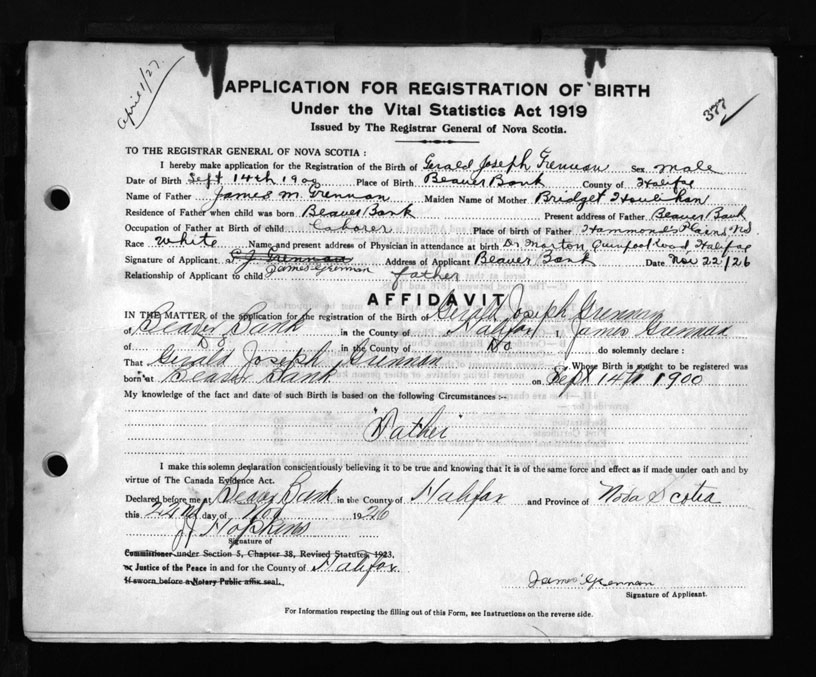 April 1/27.
377
APPLICATION FOR REGISTRATION OF BIRTH
Under the Vital Statistics Act 1919
Issued by The Registrar General of Nova Scotia.
TO THE REGISTRAR GENERAL OF NOVA SCOTIA :
I hereby make application for the Registration of the Birth of Gerald Joseph Grennan Sex male
Date of Birth Sept 14th 1900 Place of Birth Beaver Bank County of Halifax
Name of Father James M. Grennan Maiden Name of Mother Bridget Houlihan
Residence of Father when child was born Beaver Bank Present address of Father Beaver Bank
Occupation of Father at Birth of child Laborer Place of birth of Father Hammonds Plains NS
Race White Name and present address of Physician in attendance at birth Dr Morton Quinpool Road Halifax
Signature of Applicant Grennan Address of Applicant Beaver Bank Date Nov 22/26
James Grennan
Relationship of Applicant to child father
AFFIDAVIT
IN THE MATTER of the application for the registration of the Birth of Gerald Joseph Grennan
of Beaver Bank in the County of Halifax I, James Grennan
of Do in the County of Do do solemnly declare :
That Gerald Joseph Grennan Whose Birth is sought to be registered was
born at Beaver Bank on Sept 14th 1900
My knowledge of the fact and date of such Birth is based on the following Circumstances :-
"Father"
I make this solemn declaration conscientiously believing it to be true and knowing that it is of the same force and effect as if made under oath and by
virtue of The Canada Evidence Act.
Declared before me at Beaver Bank in the County of Halifax and Province of Nova Scotia
this 22nd day of Nov 1926
J Hopkins
Signature of
Commissioner under Section 5, Chapter 38, Revised Statutes, 1923.
or Justice of the Peace in and for the County of Halifax
If sworn before a Notary Public affix seal.
James Grennan
Signature of Applicant.
For Information respecting the filling out of this Form, see Instructions on the reverse side.